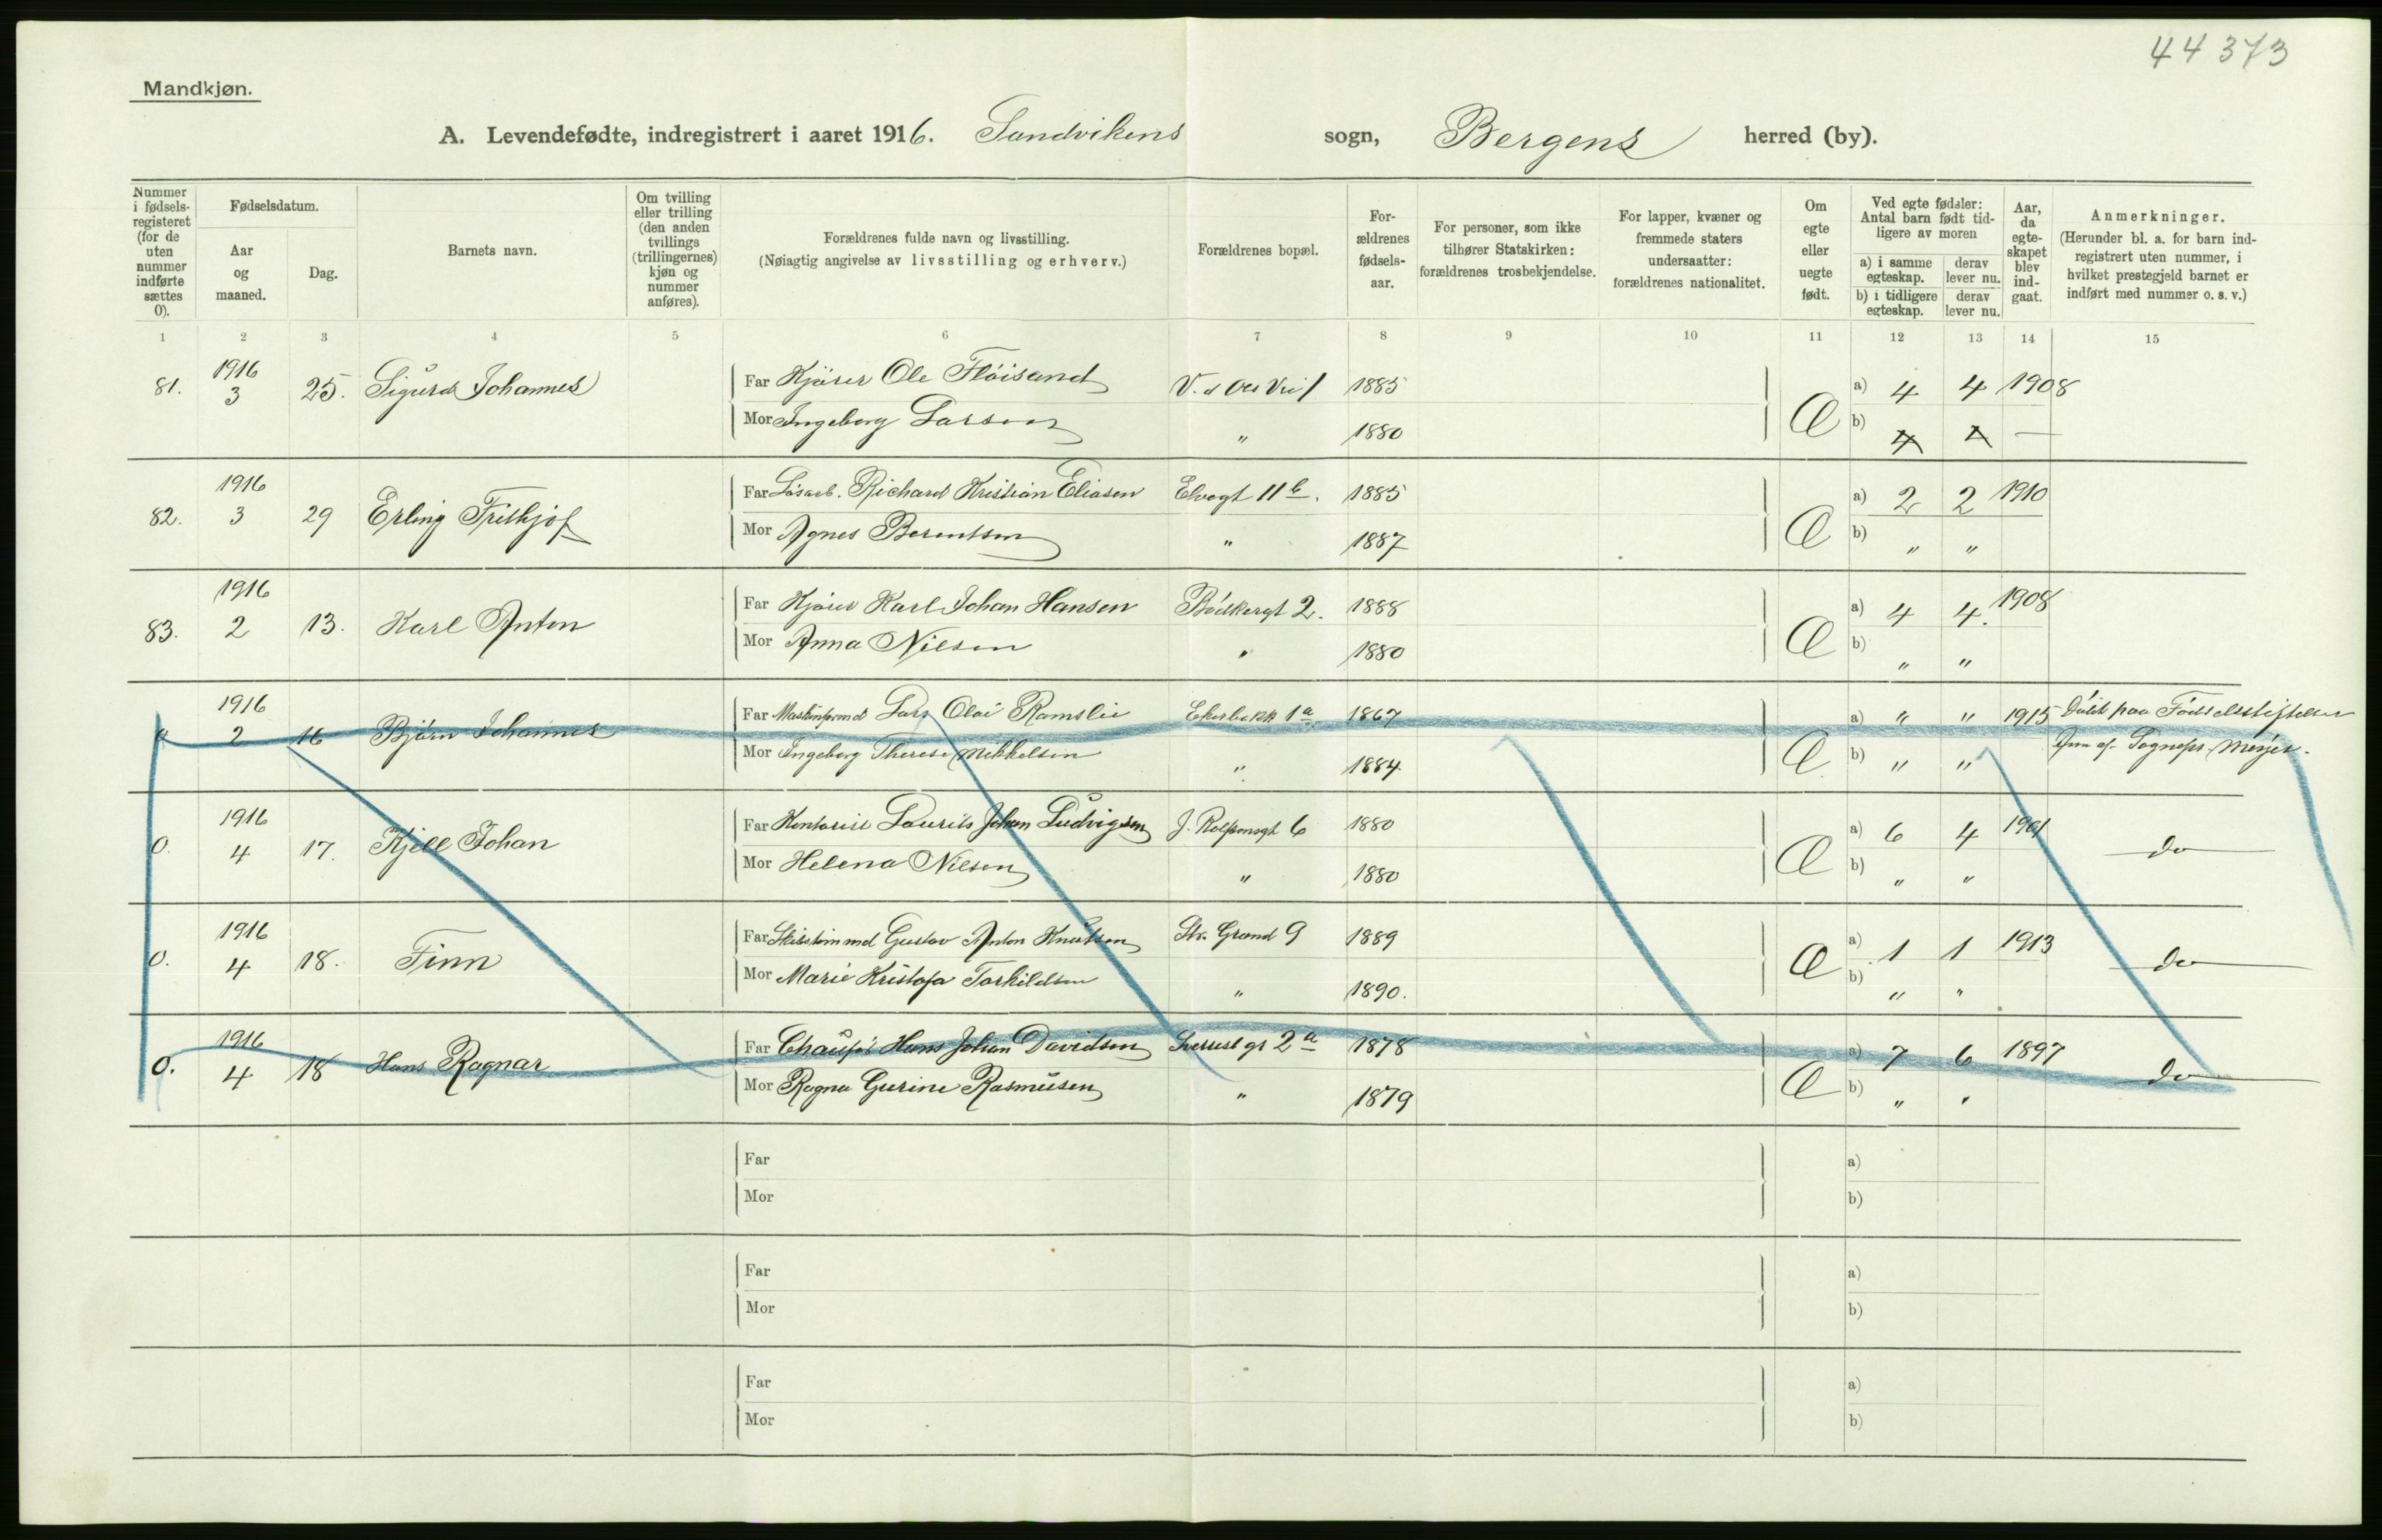 44373
Mandkjøn.
A. Levendefødte, indregistrert i aaret 1916. Sandvikens sogn, Bergens herred (by).
Nummer i fødselsregisteret (for de uten nummer indførte sættes 0).
Fødselsdatum.
Aar og maaned.
Dag.
Barnets navn.
Om tvilling eller trilling (den anden tvillings (trillingernes) kjøn og nummer anføres).
Forældrenes fulde navn og livsstilling.
(Nøiagtig angivelse av livsstilling og erhverv.)
Forældrenes bopæl.
Forældrenes fødselsaar.
For personer, som ikke tilhører Statskirken: forældrenes trosbekjendelse.
For lapper, kvæner og fremmede staters undersaatter: forældrenes nationalitet.
Om egte eller uegte født.
Ved egte fødsler: Antal barn født tidligere av moren
a) i samme egteskap. derav lever nu.
b) i tidligere egteskap. derav lever nu.
Aar, da egteskapet blev indgaat.
Anmerkninger.
(Herunder bl. a. for barn indregistrert uten nummer, i hvilket prestegjeld barnet er indført med nummer o. s. v.)
1 2 3 4 5 6 7 8 9 10 11 12 13 14 15
81. 1916 3 25. Sigurd Johannes Far Kjører Ole Fløisand 1885 Æ a) 4 4 1908
Mor Ingeborg Larsen " 1880 b) 4 4 —
82. 1916 3 29 Erling Frithjof Far Løsarb. Richard Kristian Eliasen Elvegt 11 b. 1885 Æ a) 2 2 1910
Mor Agnes Berentsen " 1887 b) " "
83. 1916 2 13. Karl Anton Far Kjører Karl Johan Hansen Bødkergt 2. 1888 Æ a) 4 4. 1908
Mor Anna Nilsen " 1880 b) " "
0 1916 2 16 Bjørn Johannes Far Lars Olai Ramslie 1a 1867 Æ a) " " 1915 Døbt paa Fødselsstiftelsen
Mor Ingeborg Therese Mikkelsen " 1884 b) " " af Sognepr.
0. 1916 4 17. Kjell Johan Far Kontorist Laurits Johan Ludvigsen J. 6 1880 Æ a) 6 4 1901 do
Mor Helena Nilsen " 1880 b) " "
0. 1916 4 18. Finn Far Gustav Anton Knutsen Str. Grand 9 1889 Æ a) 1 1 1913 do
Mor Marie Kristofa Torkildsen " 1890. b) " "
0. 1916 4 18 Hans Ragnar Far Hans Johan Davidsen 2 a 1878 Æ a) 7 6 1897 do
Mor Ragna Gurine Rasmusen " 1879 b) " "
Far a)
Mor b)
Far a)
Mor b)
Far a)
Mor b)